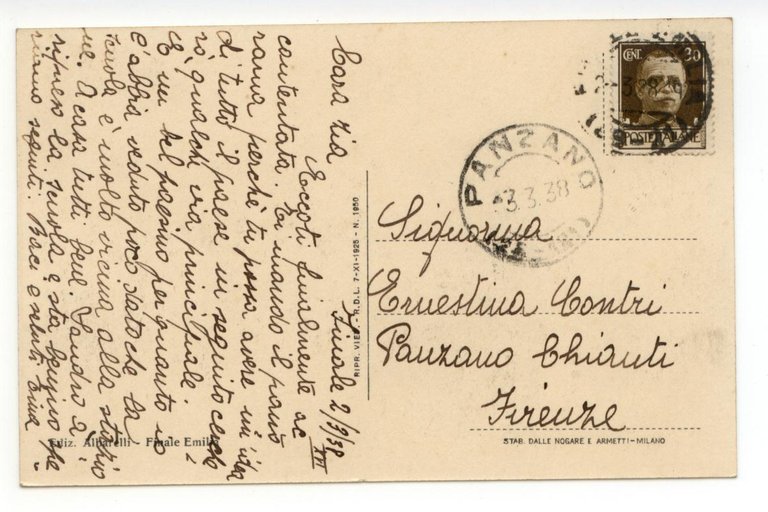 Finale 2/3/38
XVI
Cara Zia
Eccoti finalmente ac
contentata. Ti mando il pano
rama perchè tu possa avere un'idea
di tutto il paese in seguito cerche
rò qualche via principale.
È un bel paesino per quanto io
l'abbia veduto poco datochè la
scuola è molto vicina alla stazio
ne. A casa tutti bene. Sandro à
ripreso la scuola e sta benino per
Baci e saluti
CENT. 30
POSTE ITALIANE
PANZANO
3.3.38
Signorina
Ernestina Contri
Panzano Chianti
Firenze
RIPR. VIET. - R.D.L. 7-XI-1925 - N. 1950
Ediz. Albarelli - Finale Emilia
STAB. DALLE NOGARE E ARMETTI - MILANO